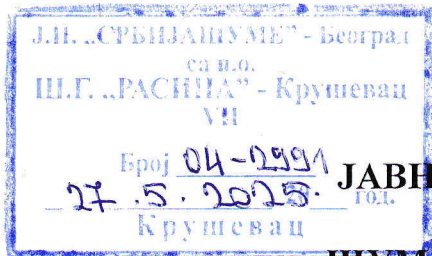 Ј.П. „СРБИЈАШУМЕ” - Београд
са п.о.
Ш.Г. „РАСИНА” - Крушевац
VII
Број 04-2991
27.5.2025. год.
Крушевац
ЈАВН
ШУМ